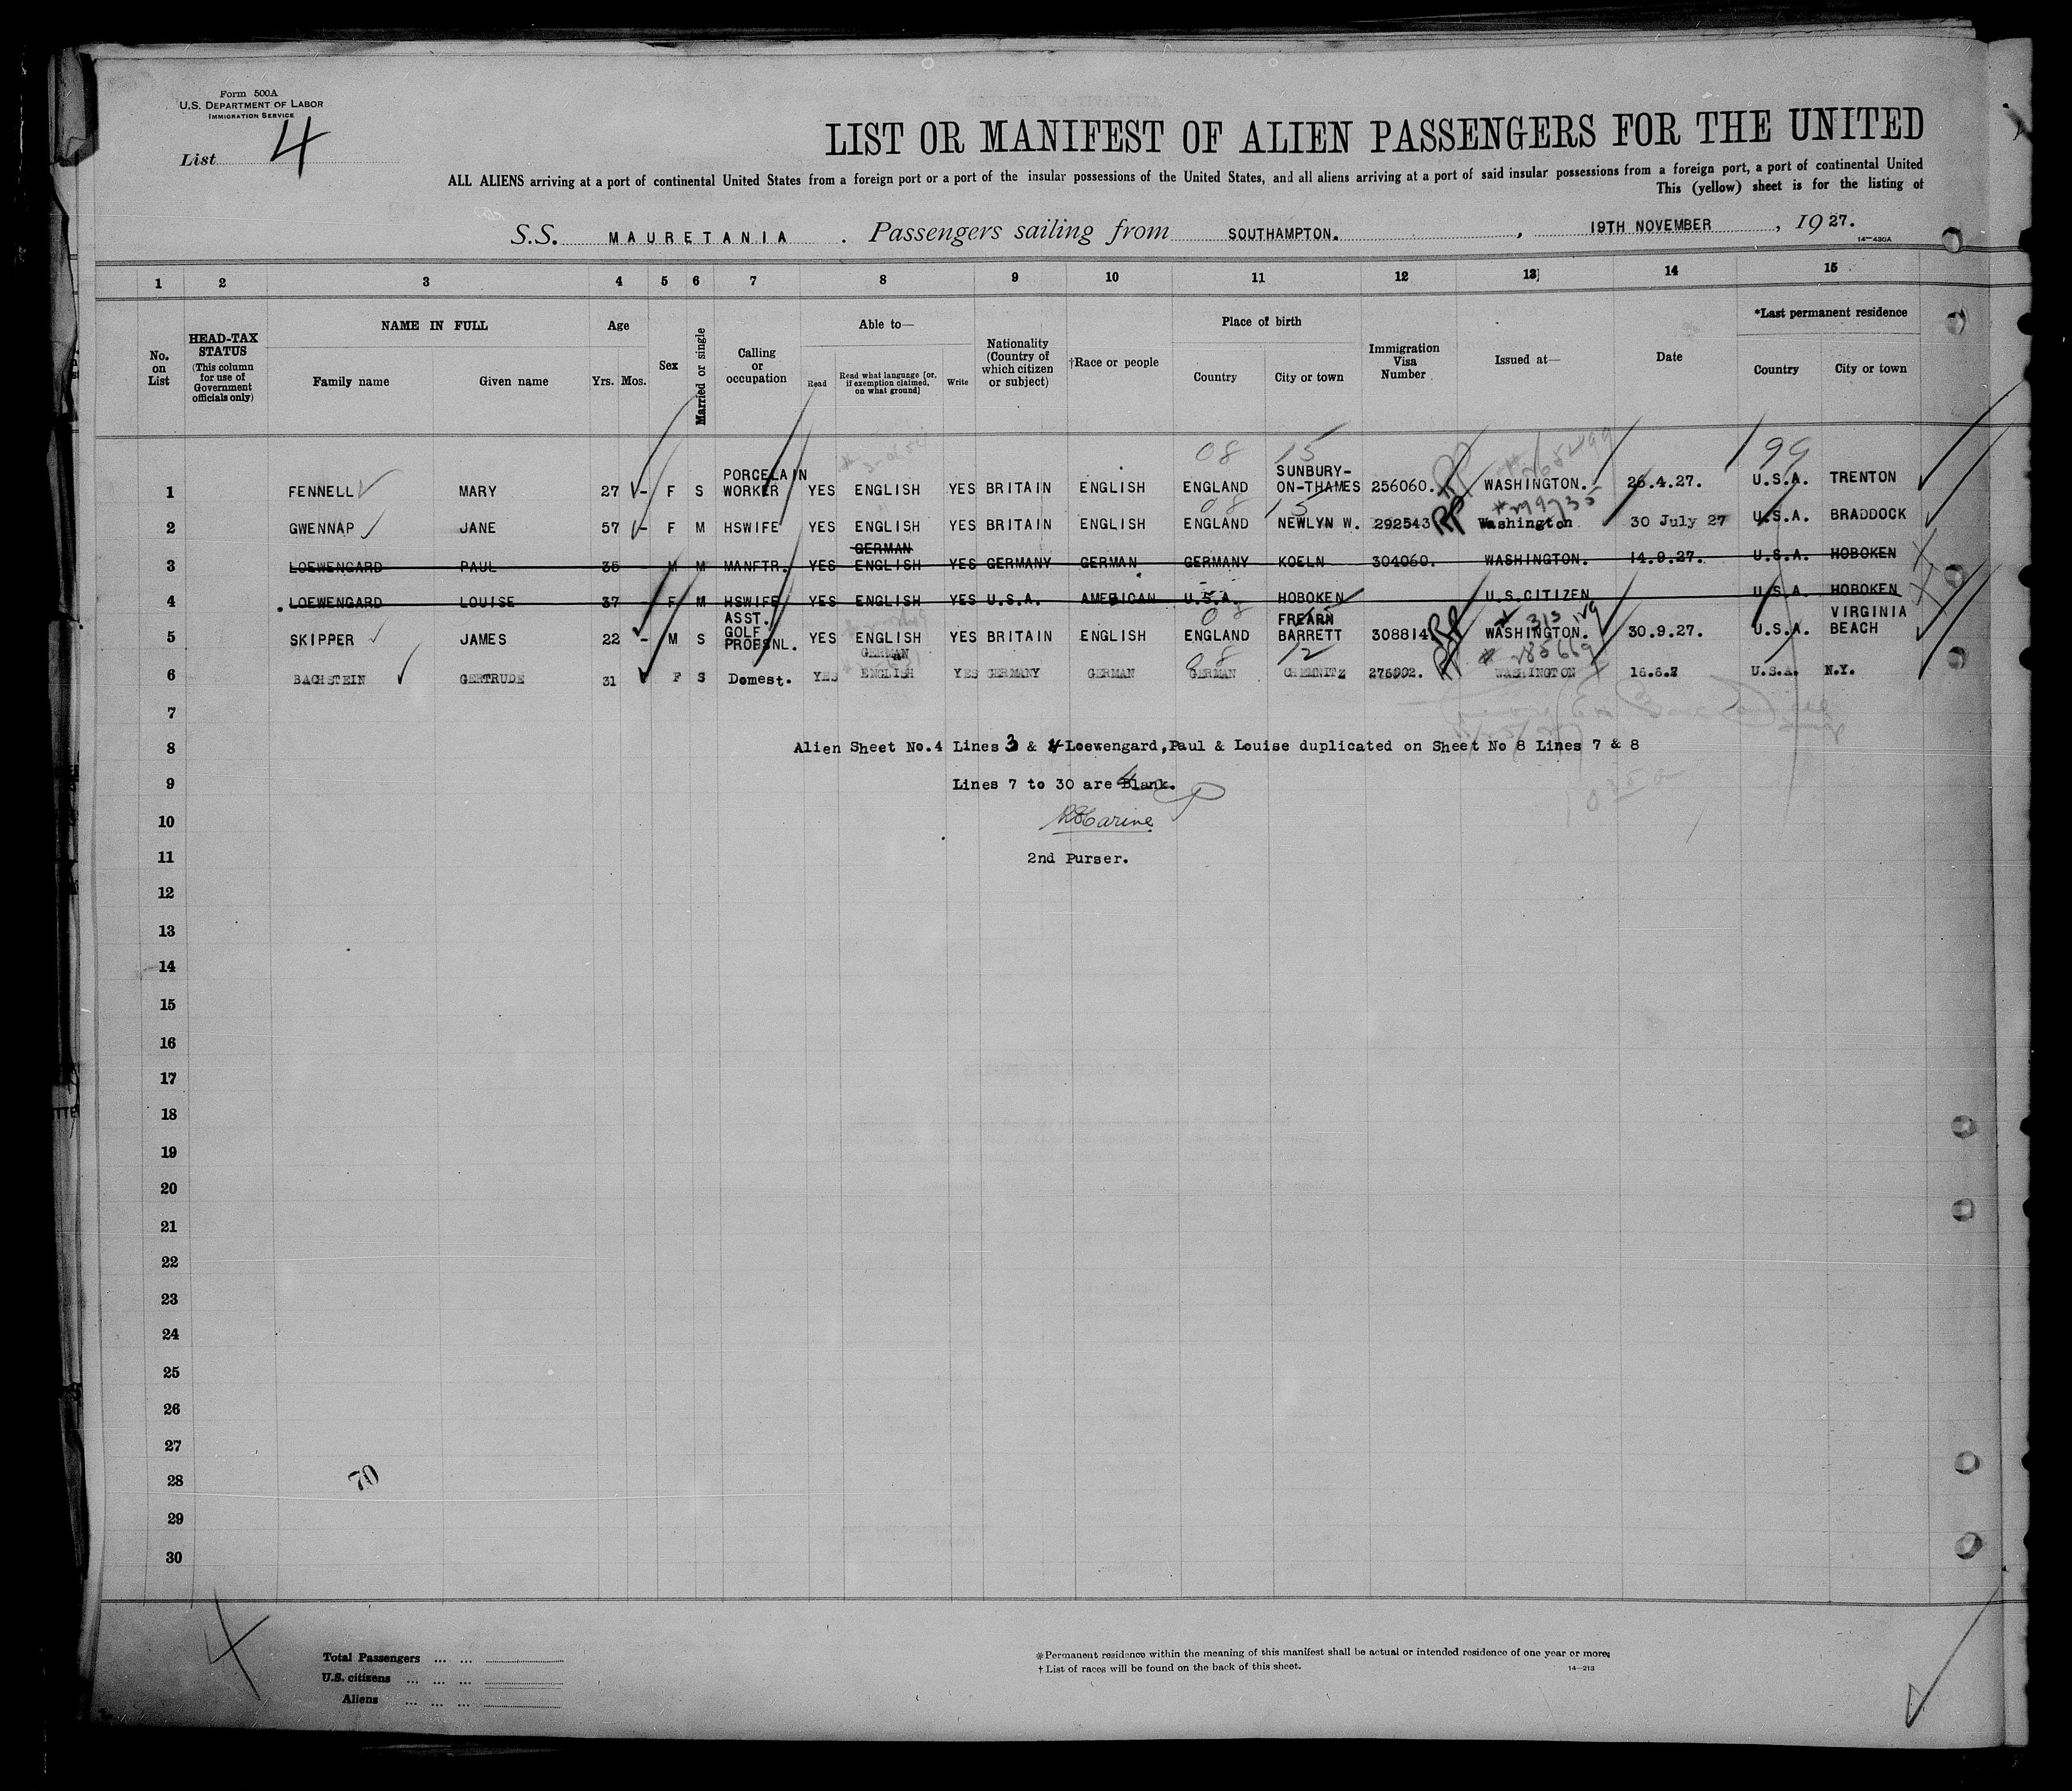 Form 500A
U.S. DEPARTMENT OF LABOR
IMMIGRATION SERVICE
List 4
LIST OR MANIFEST OF ALIEN PASSENGERS FOR THE UNITED
ALL ALIENS arriving at a port of continental United States from a foreign port or a port of the insular possessions of the United States, and all aliens arriving at a port of said insular possessions from a foreign port, a port of continental United
This (yellow) sheet is for the listing of
S.S. MAURETANIA . Passengers sailing from SOUTHAMPTON. , 19TH NOVEMBER , 1927.
14—430A
1 2 3 4 5 6 7 8 9 10 11 12 13 14 15
No. on List
HEAD-TAX STATUS (This column for use of Government officials only)
NAME IN FULL
Family name Given name
Age
Yrs. Mos.
Sex
Married or single
Calling or occupation
Able to—
Read Read what language [or, if exemption claimed, on what ground] Write
Nationality (Country of which citizen or subject)
†Race or people
Place of birth
Country City or town
Immigration Visa Number
Issued at—
Date
*Last permanent residence
Country City or town
08 15 99
1 FENNELL MARY 27 - F S PORCELAIN WORKER YES ENGLISH YES BRITAIN ENGLISH ENGLAND SUNBURY-ON-THAMES 256060. WASHINGTON. 26.4.27. U.S.A. TRENTON
08 15 #299735
2 GWENNAP JANE 57 - F M HSWIFE YES ENGLISH YES BRITAIN ENGLISH ENGLAND NEWLYN W. 292543 Washington 30 July 27 U.S.A. BRADDOCK
3 LOEWENGARD PAUL 35 M M MANFTR. YES GERMAN ENGLISH YES GERMANY GERMAN GERMANY KOELN 304060. WASHINGTON. 14.9.27. U.S.A. HOBOKEN
4 LOEWENGARD LOUISE 37 - F M HSWIFE YES ENGLISH YES U.S.A. AMERICAN U.S.A. HOBOKEN U.S.CITIZEN U.S.A. HOBOKEN
5 SKIPPER JAMES 22 - M S ASST. GOLF PROFSNL. YES ENGLISH YES BRITAIN ENGLISH ENGLAND FREARN BARRETT 308814. WASHINGTON. 30.9.27. U.S.A. VIRGINIA BEACH
08 12 #285669
6 BACHSTEIN GERTRUDE 31 F S Domest. YES GERMAN & ENGLISH YES GERMANY GERMAN GERMAN CHEMNITZ 275902. WASHINGTON 16.6.2 U.S.A. N.Y.
7
8 Alien Sheet No.4 Lines 3 & 4 Loewengard,Paul & Louise duplicated on Sheet No 8 Lines 7 & 8
9 Lines 7 to 30 are Blank.
10
11 2nd Purser.
12
13
14
15
16
17
18
19
20
21
22
23
24
25
26
27
28 70
29
30
4
Total Passengers ... ...
U.S. citizens ... ... ...
Aliens ... ... ...
*Permanent residence within the meaning of this manifest shall be actual or intended residence of one year or more.
† List of races will be found on the back of this sheet.
14—213